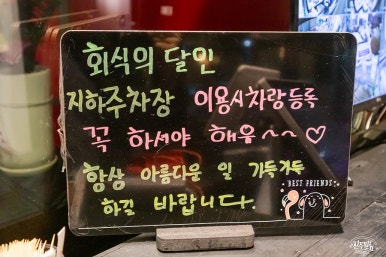 회식의 달인
지하주차장 이용시 차량등록
꼭 하셔야 해유~~♡
항상 아름다운 일 가득가득
하길 바랍니다.
BEST FRIENDS